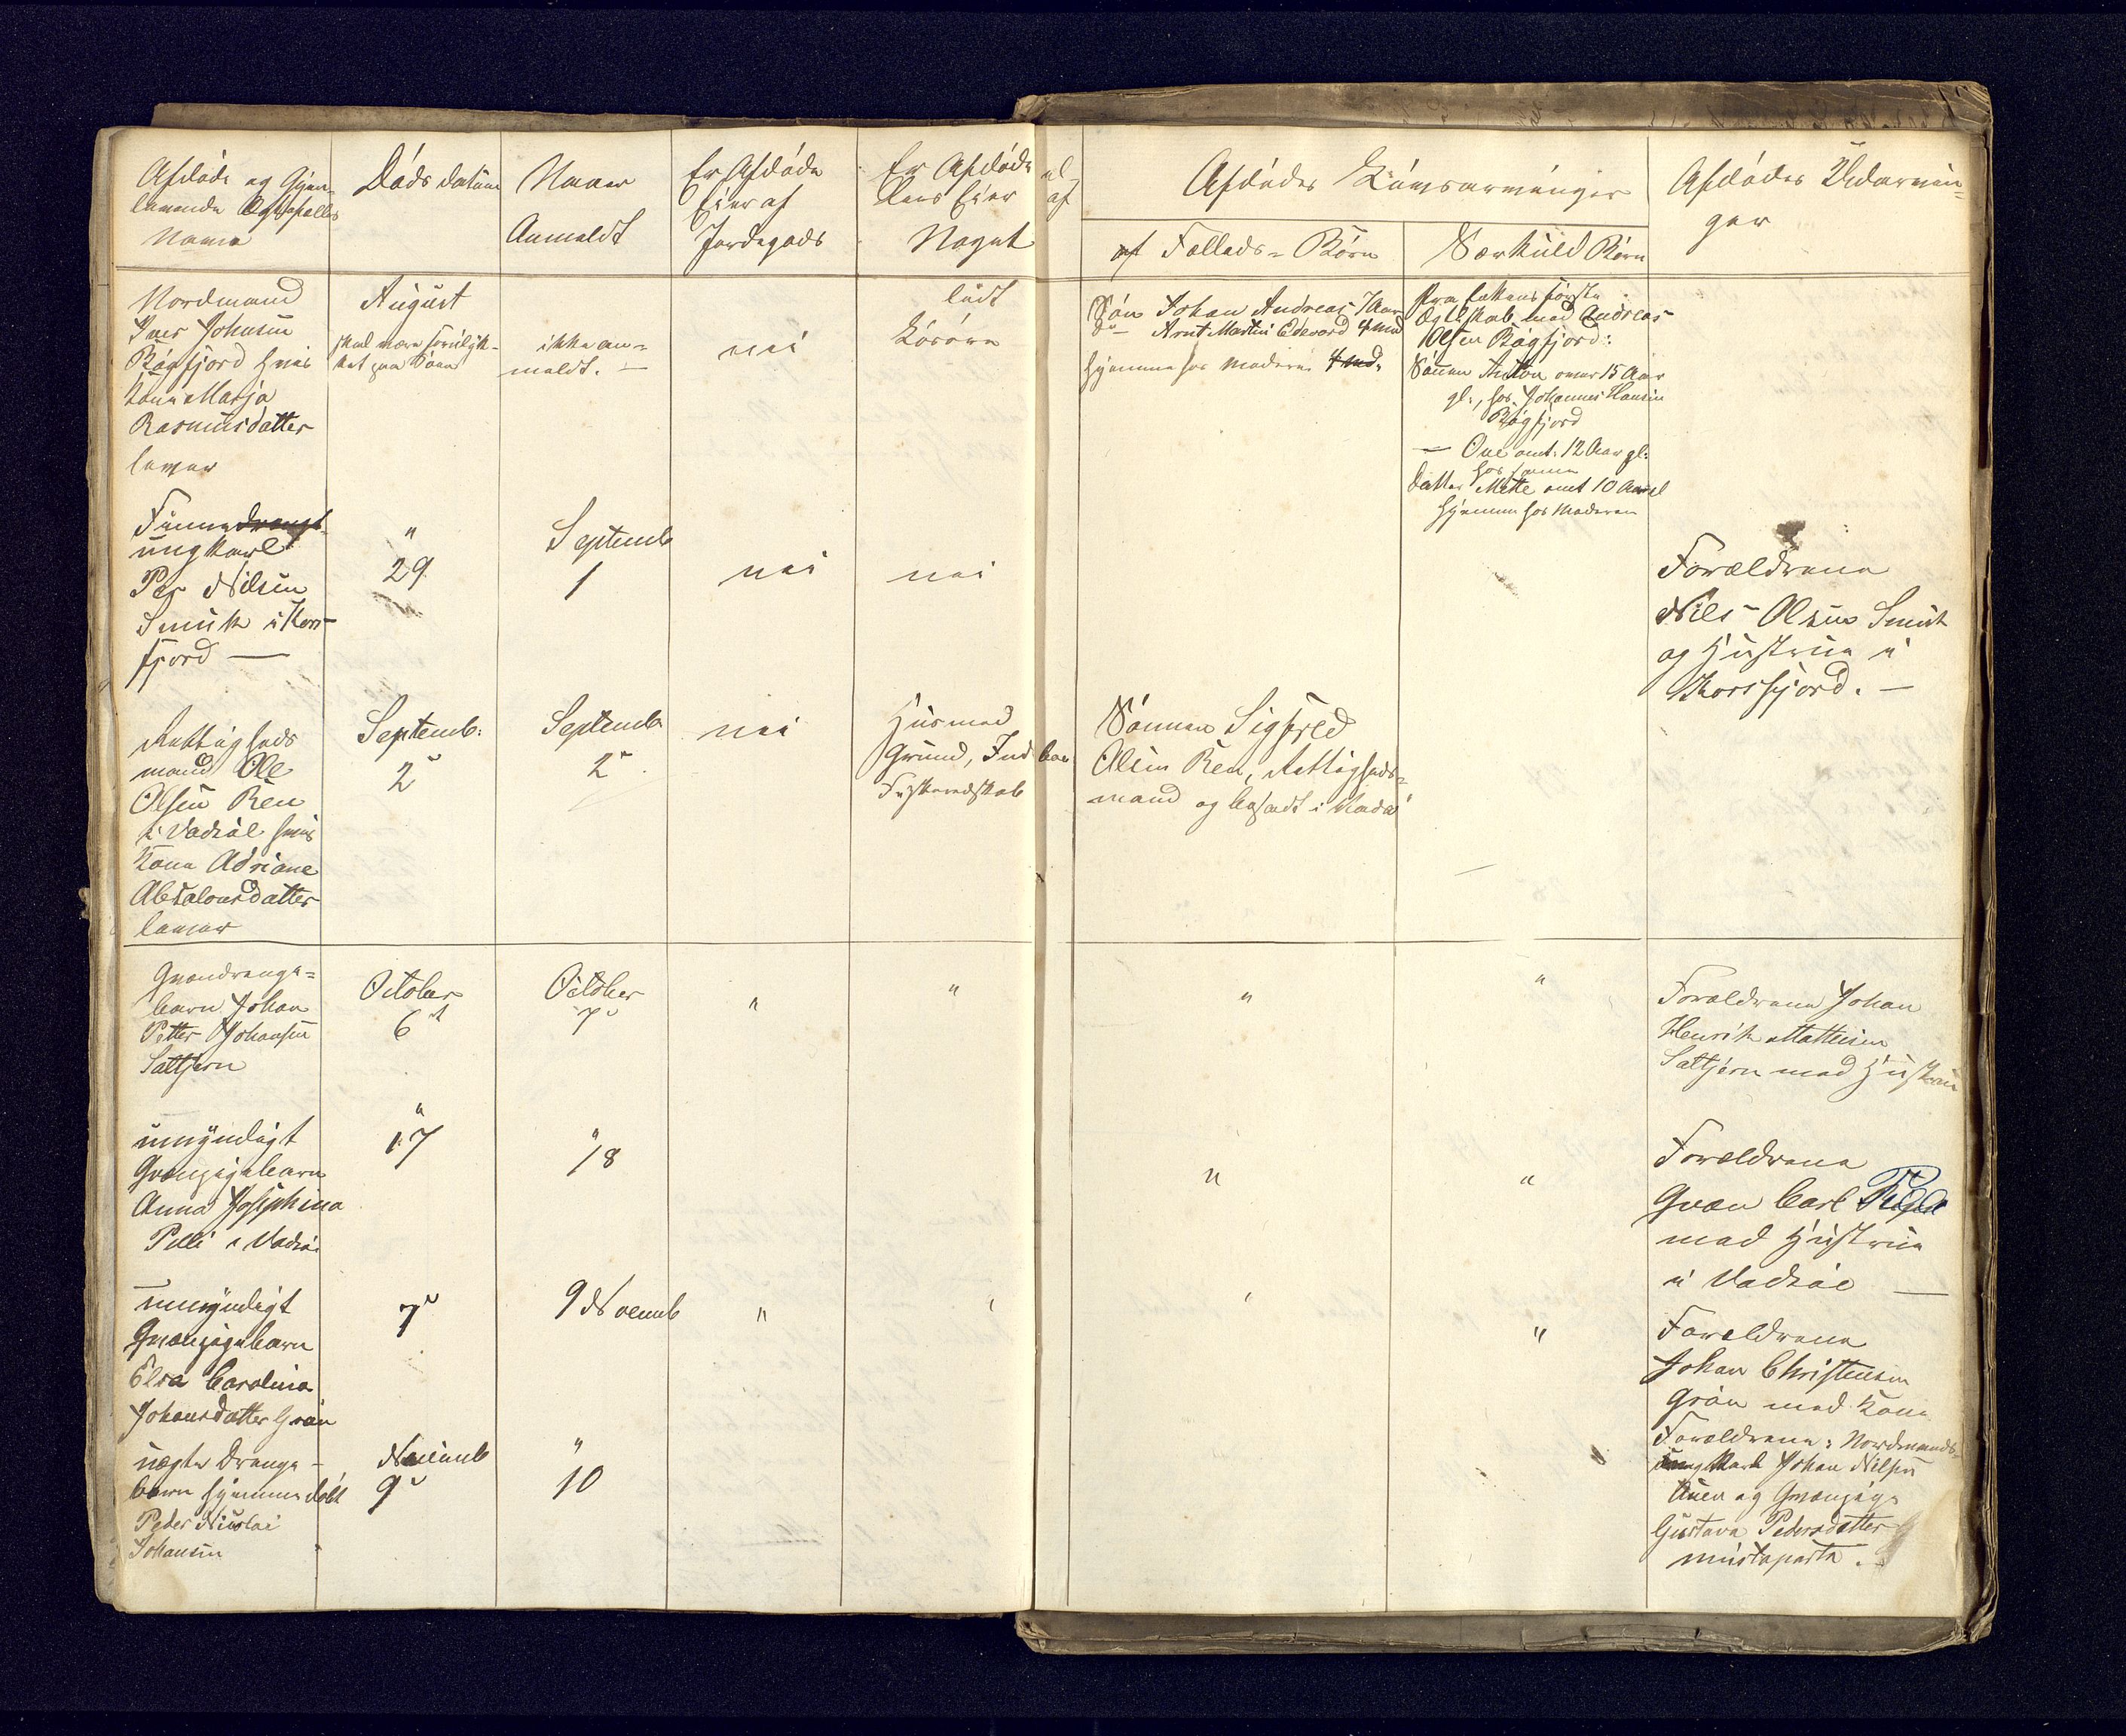 Afdøde og Gjen-
levende Ægtefælles
Navn
Døds datum
Naar
Anmeldt
Er Afdøde
Eier af
Jordegods
Er Afdøde
Eier af
Noget
Afdødes Livsarvinger
af Fælleds- Børn
Særkuld Børn
Afdødes Udarvin-
ger
Nordmand
Iver Johnsen
Bøgfjord hvis
Kone Marja
Rasmusdatter
lever
August
skal være forulyk-
ket paa Søen
ikke an-
meldt. —
nei
lidt
Løsøre
Søn Johan Andreas 7 Aar
do Arnt Martin Edevard 4 md
hjemme hos Moderen
fra Enkens første
Ægteskab med Andreas
Olsen Bøgfjord:
Sønnen Anton over 15 Aar
gl:, hos Johannes Hansen
Bøgfjord
— Ove omt. 12 Aar gl:
hos samme
Datter Mette omt 10 Aar gl
hjemme hos Moderen
Finnedrengt
ungkarl
Per Nilsen
Smuk i Kors-
fjord —
"
29
Septemb
1
nei
nei
Forældrene
Nils Olsen Smuk
og Hustrue i
Korsfjord. —
Rettigheds
mand Ole
Olsen Ren
i Vadsøe hvis
Kone Adriane
Absalonsdatter
lever
Septemb:
2
Septemb
2
nei
Huus med
Grund, Indboe
Fiskeredskab
Sønnen Sigfred
Olsen Ren, Rettigheds-
mand og bosadt i Vadsø
Qvændrenge-
barn Johan
Petter Johansen
Saltjern
October
6
October
7
"
"
"
"
Forældrene Johan
Henrik Mattisen
Saltjern med Hustrue
umyndigt
Qvænpigebarn
Anna Josephina
Pilli i Vadsø
"
17
"
18
"
"
Forældrene
Qvæn Carl
med Hustrue
i Vadsøe —
umyndigt
Qvænpigebarn
Elsa Carolina
Johansdatter Grøn
7
9 Novemb
"
"
Forældrene
Johan Christensen
Grøn med Kone
uægte Drenge-
barn hjemmedøbt
Peder Nicolai
Johansen
Novemb
9
"
10
Forældrene: Nordmands-
ungkarl Johan Nilsen
og Qvænpige
Gustava Pedersdatter
Mustaparta.